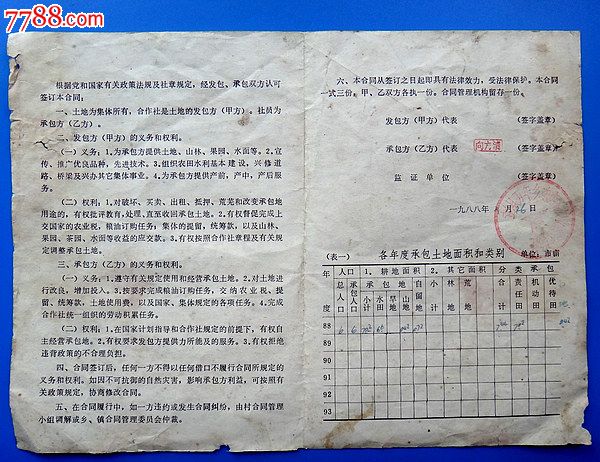 7788.com
根据党和国家有关政策法规及社章规定，经发包、承包双方认可
签订本合同：
一、土地为集体所有，合作社是土地的发包方（甲方）。社员为
承包方（乙方）。
二、发包方（甲方）的义务和权利。
（一）义务：1.为承包方提供土地、山林、果园、水面等。2.宣
传、推广优良品种，先进技术。3.组织农田水利基本建设，兴修道
路、桥梁及兴办其它集体事业。4.为承包方提供产前，产中，产后服
务。
（二）权利：1.对破坏、买卖、出租、抵押、荒芜和改变承包地
用途的，有权批评教育，处理，直至收回承包土地。2.有权督促完成上
交国家的农业税，粮油订购任务；集体的提留，统筹款，以及山林、
果园、茶园、水面等收益的应交款。3.有权按照合作社章程及有关规
定调整承包土地。
三、承包方（乙方）的义务和权利。
（一）义务：1.遵守有关规定使用和经营承包土地。2.对土地进
行改良，增加投入。3.按要求完成粮油订购任务，交纳农业税、提
留、统筹款，土地使用费，以及国家、集体规定的各项任务。4.完成
合作社统一组织的劳动积累任务。
（二）权利：1.在国家计划指导和合作社规定的前提下，有权自
主经营承包地。2.有权要求发包方提供力所能及的服务。3.有权拒绝
违背政策的不合理负担。
四、合同签订后，任何一方不得以任何借口不履行合同所规定的
义务和权利。如因不可抗御的自然灾害，影响承包方利益，可按照有
关政策规定，协商修改合同。
五、在合同履行中，如一方违约或发生合同纠纷，由村合同管理
小组调解或乡、镇合同管理委员会仲裁。
六、本合同从签订之日起即具有法律效力，受法律保护。本合同
一式三份，甲、乙双方各执一份。合同管理机构留存一份。
发包方（甲方）代表 （签字盖章）
承包方（乙方）代表 （签字盖章）
监证单位 （签字盖章）
一九八八年 月26日
（表一） 各年度承包土地面积和类别 单位：市亩
年度 人口 1.耕地面积 2.其它面积 分类承包
总人口 承包人口 小计 水田 旱地 山地 自留地 小计 林地 荒地 合计 责任田 机动田 优待田
88 6 6
89
90
91
92
93